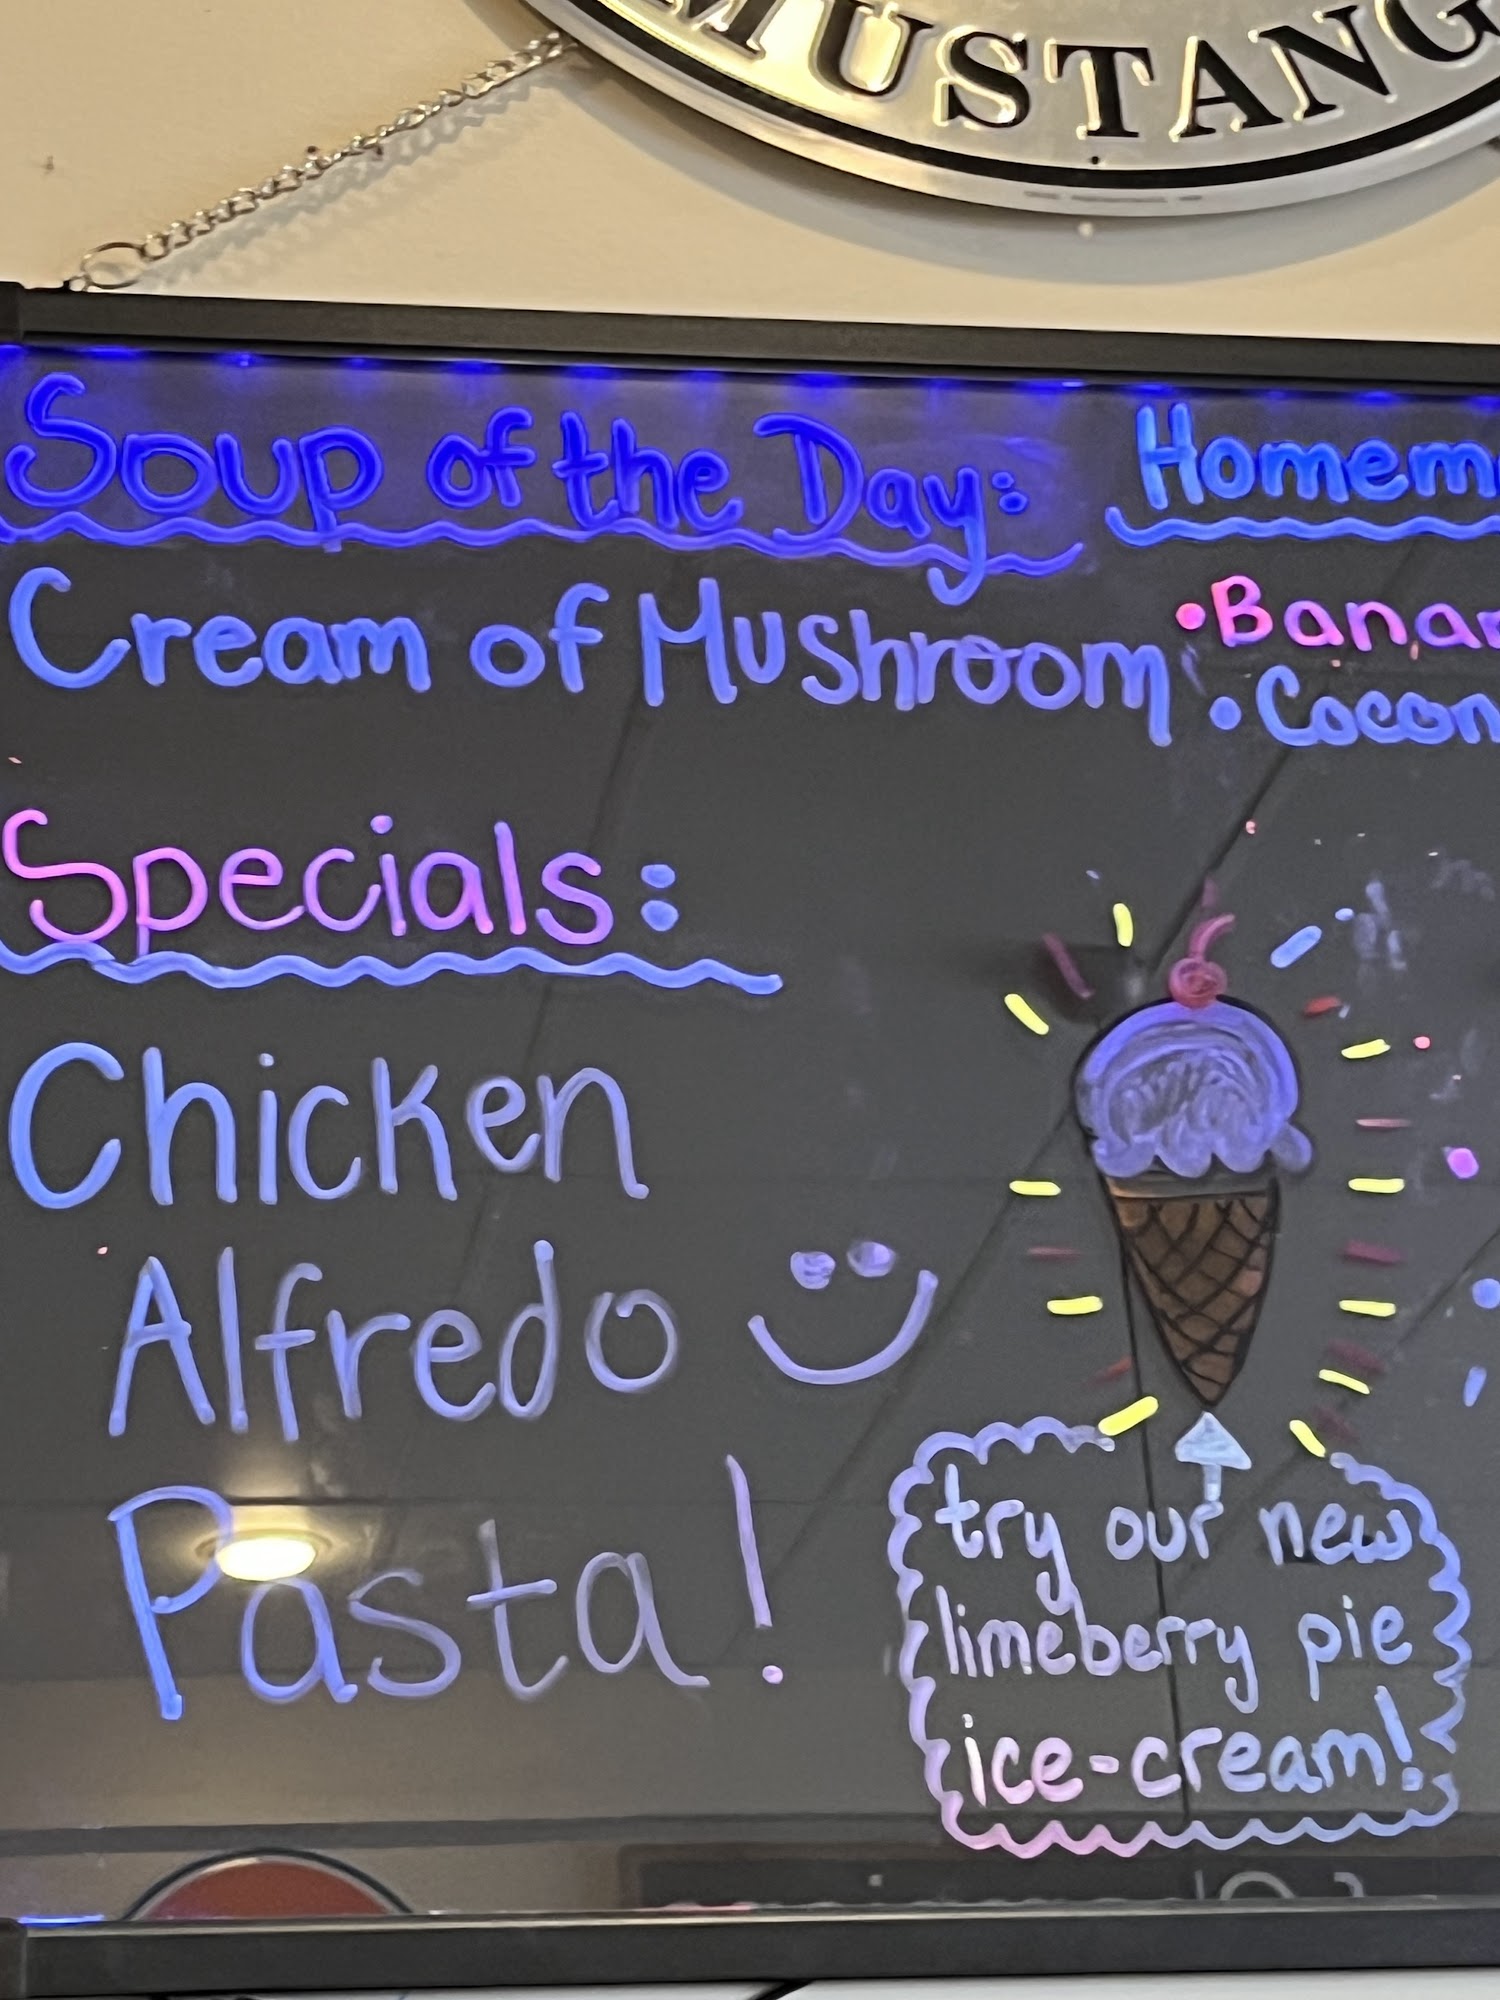 MUSTANG
Soup of the Day:
Cream of Mushroom
Homem
•Banan
•Cocon
Specials:
Chicken
Alfredo
Pasta!
try our new
limeberry pie
ice-cream!